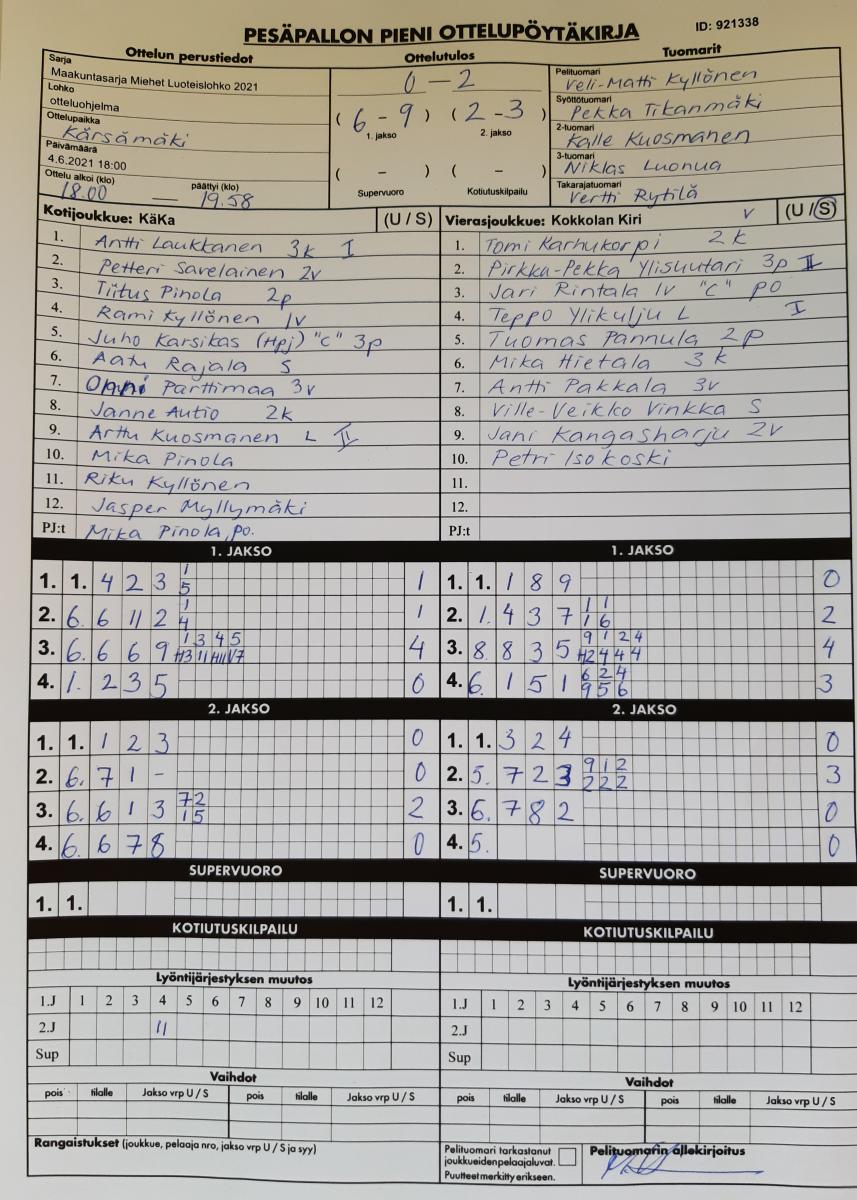 PESÄPALLON PIENI OTTELUPÖYTÄKIRJA
ID: 921338
Ottelun perustiedot
Sarja
Maakuntasarja Miehet Luoteislohko 2021
Lohko
otteluohjelma
Ottelupaikka
Kärsämäki
Päivämäärä
4.6.2021 18:00
Ottelu alkoi (klo) päättyi (klo)
18.00 — 19.58
Ottelutulos
0 - 2
( 6 - 9 ) ( 2 - 3 )
1. jakso 2. jakso
( - ) ( - )
Supervuoro Kotiutuskilpailu
Tuomarit
Pelituomari
Veli-Matti Kyllönen
Syöttötuomari
Pekka Tikanmäki
2-tuomari
Kalle Kuosmanen
3-tuomari
Niklas Luonua
Takarajatuomari
Vertti Rytilä
Kotijoukkue: KäKa (U / S)
1. Antti Laukkanen 3k I
2. Petteri Savelainen 2v
3. Tiitus Pinola 2p
4. Rami Kyllönen 1v
5. Juho Karsikas (Hpj) "C" 3p
6. Aatu Rajala S
7. Onni Parttimaa 3v
8. Janne Autio 2k
9. Arttu Kuosmanen L II
10. Mika Pinola
11. Riku Kyllönen
12. Jasper Myllymäki
PJ:t Mika Pinola, po.
Vierasjoukkue: Kokkolan Kiri v (U / S)
1. Tomi Karhukorpi 2k
2. Pirkka-Pekka Ylishutari 3p II
3. Jari Rintala 1v "C" PO
4. Teppo Ylikulju L I
5. Tuomas Pannula 2p
6. Mika Hietala 3k
7. Antti Pakkala 3v
8. Ville-Veikko Vinkka S
9. Jani Kangasharju 2v
10. Petri Isokoski
11.
12.
PJ:t
1. JAKSO
1. 1. 4 2 3 1 1
5
2. 6. 6 11 2 1 1
4
3. 6. 6 6 9 1 3 4 5 4
H3 11 H11 V7
4. 1. 2 3 5 0
1. JAKSO
1. 1. 1 8 9 0
2. 1. 4 3 7 1 1 2
1 6
3. 8. 8 3 5 9 1 2 4 4
H2 4 4 4
4. 6. 1 5 1 6 2 4 3
9 5 6
2. JAKSO
1. 1. 1 2 3 0
2. 6. 7 1 - 0
3. 6. 6 1 3 7 2 2
1 5
4. 6. 6 7 8 0
2. JAKSO
1. 1. 3 2 4 0
2. 5. 7 2 3 9 1 2 3
2 2 2
3. 6. 7 8 2 0
4. 5. 0
SUPERVUORO
1. 1.
SUPERVUORO
1. 1.
KOTIUTUSKILPAILU
KOTIUTUSKILPAILU
Lyöntijärjestyksen muutos
1.J 1 2 3 4 5 6 7 8 9 10 11 12
2.J 11
Sup
Lyöntijärjestyksen muutos
1.J 1 2 3 4 5 6 7 8 9 10 11 12
2.J
Sup
Vaihdot
pois tilalle Jakso vrp U / S pois tilalle Jakso vrp U / S
Vaihdot
pois tilalle Jakso vrp U / S pois tilalle Jakso vrp U / S
Rangaistukset (joukkue, pelaaja nro, jakso vrp U / S ja syy)
Pelituomari tarkastanut
joukkueiden pelaajaluvat.
Puutteet merkitty erikseen.
Pelituomarin allekirjoitus